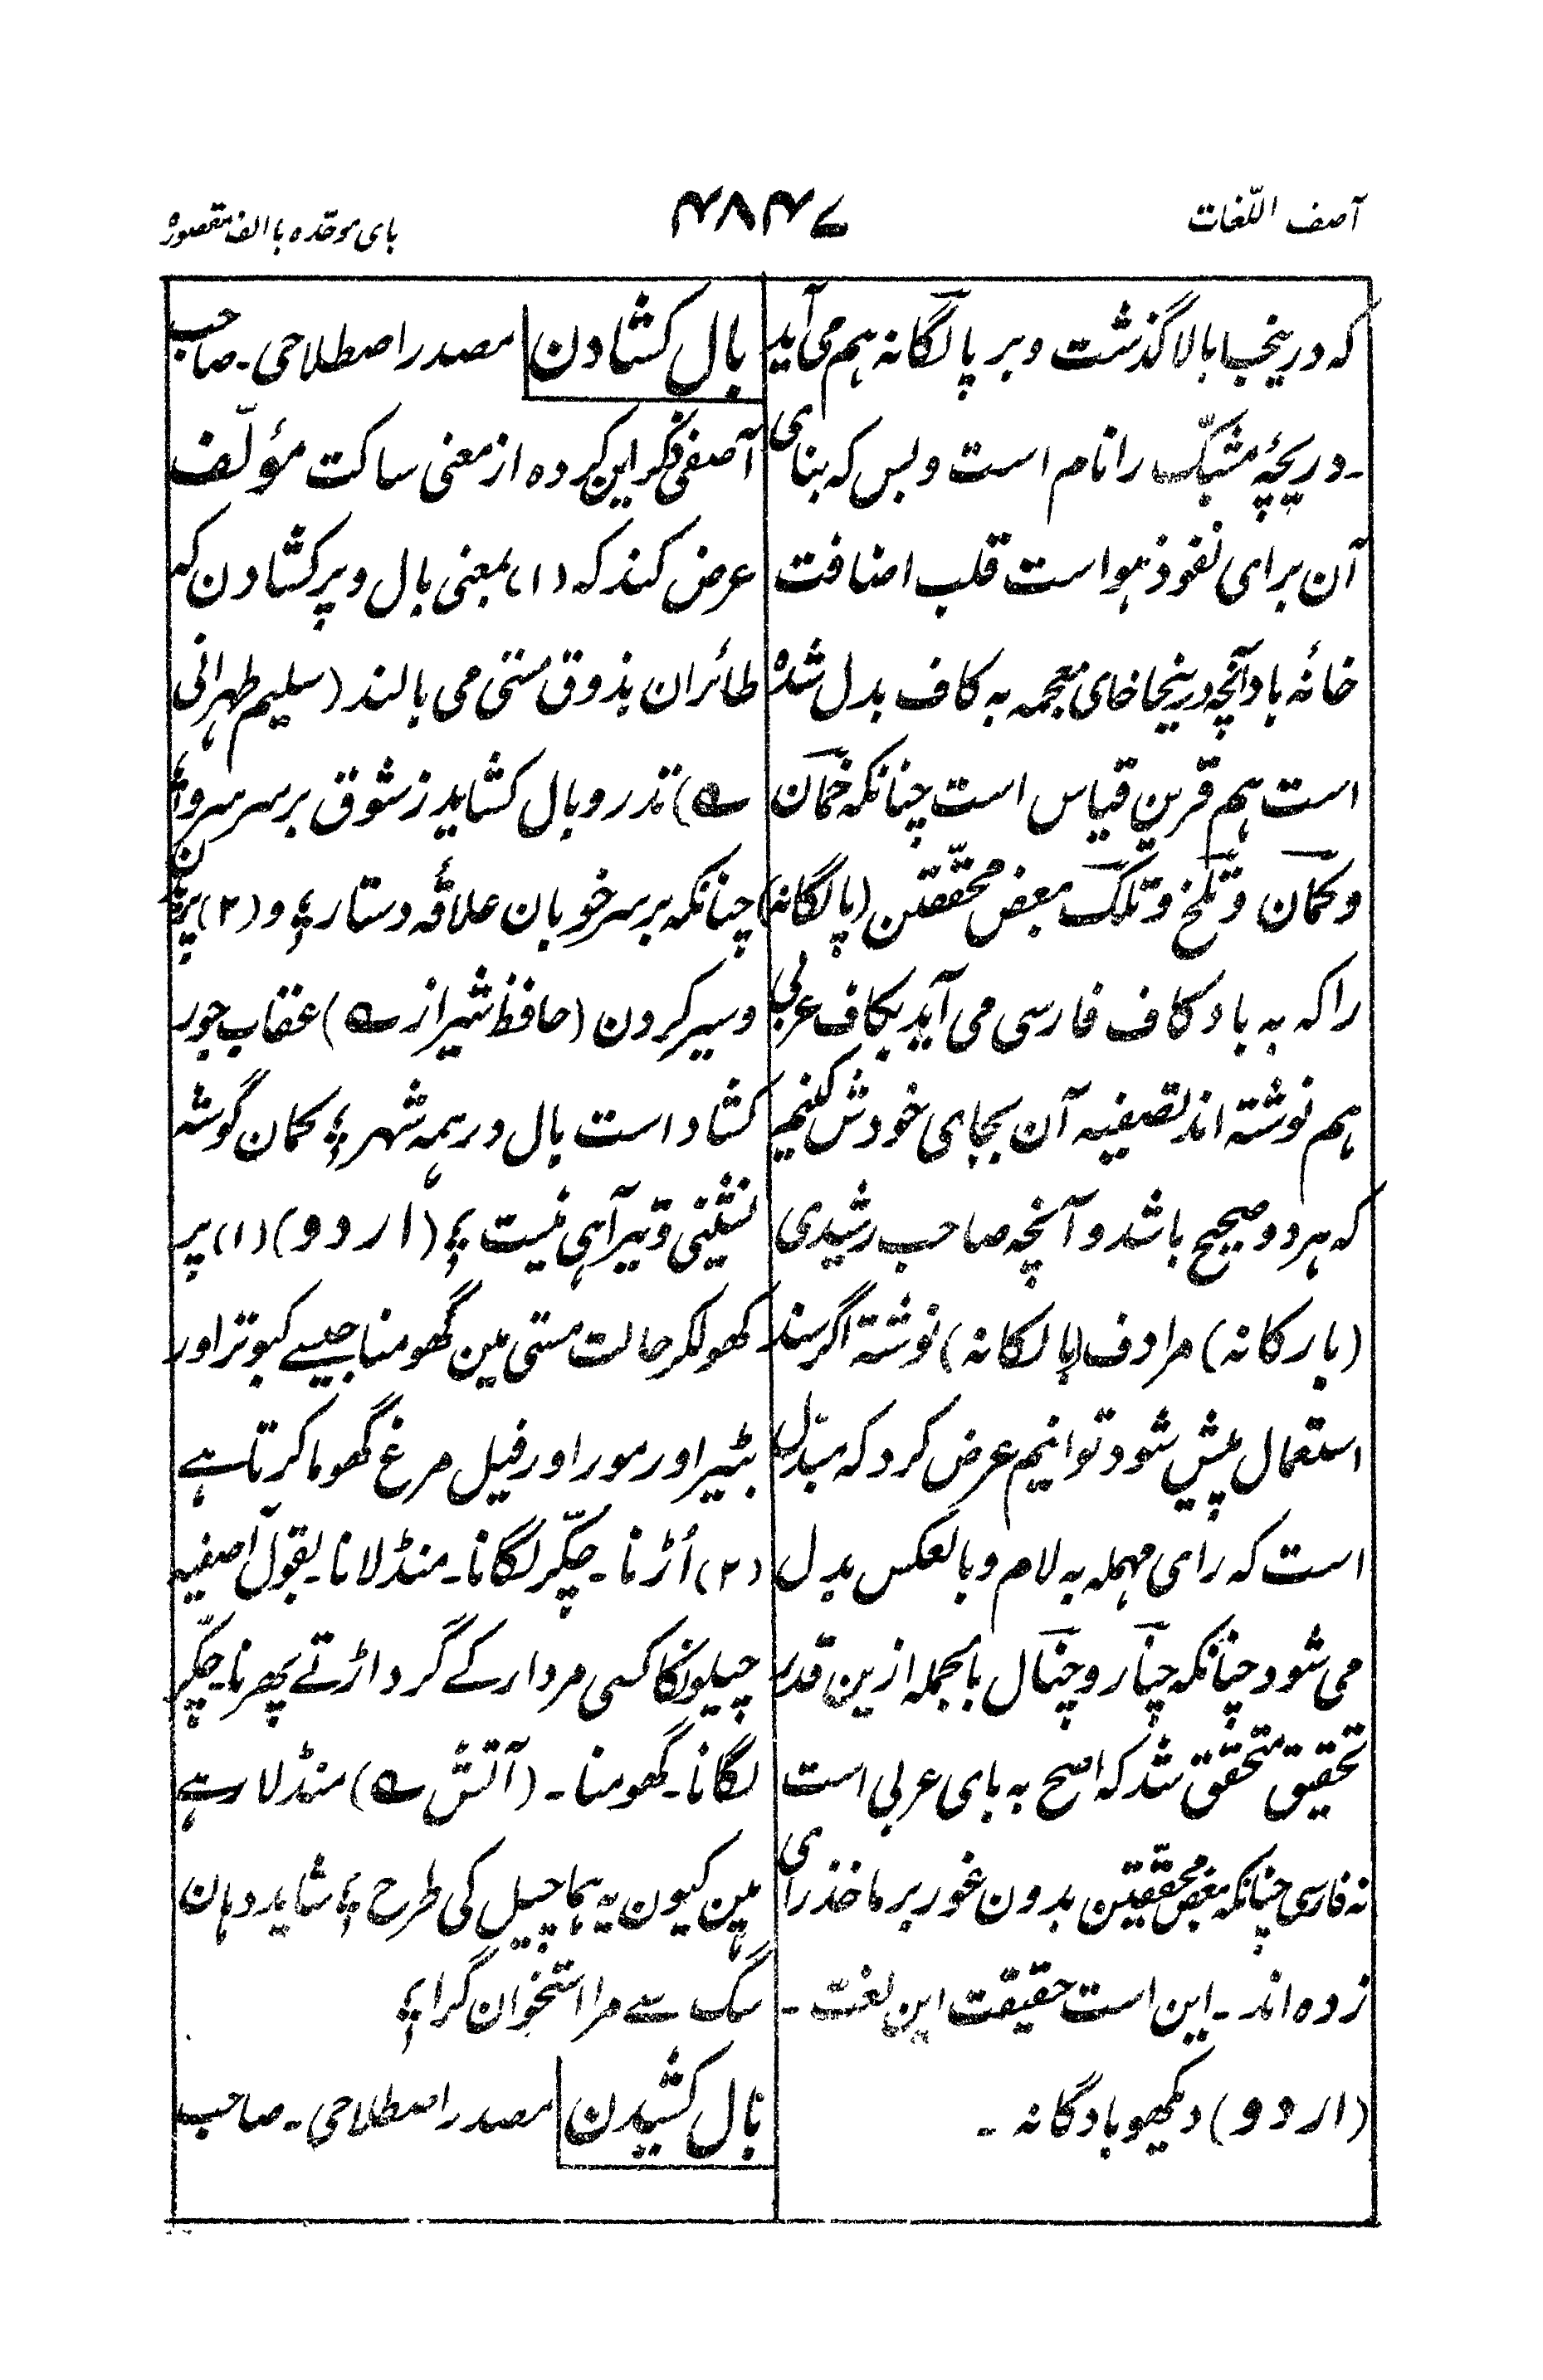 آصف اللّغات
۴۸۴۷
بای موحّده با الف مقصوره
که درینجا بالا گذشت و بر پالگانه هم می آید
۔ دریچۂ مشبّک را نام است و بس که بنای
آن برای نفوذ هواست قلب اضافت
خانۂ باد آنچه درینجا خای معجمه به کاف بدل شده
است هم قرین قیاس است چنانکه خمان
و کمان و تلخ و تلک بعض محقّقین (پالگانه)
را که به باد کاف فارسی می آید بکاف عربی
هم نوشته اند تصفیه آن بجای خودش کنیم
که هر دو صحیح باشد و آنچه صاحب رشیدی
(بارکانه) مرادف (بالکانه) نوشته اگر سند
استعمال پیش شود توانیم عرض کرد که مبدّل
است که رای مهمله به لام و بالعکس بدل
می شود چنانکه چنار و چنال بالجمله ازین قدر
تحقیق متحقق شد که اصح به بای عربی است
نه فارسی چنانکه بعض محققین بدون غور بر ماخذ رای
زده اند ۔ این است حقیقت این لغت ۔
(اردو) دیکھو بادگانه ۔
بال کشادن مصدر اصطلاحی ۔ صاحب
آصفی ذکر این کرده از معنی ساکت مؤلّف
عرض کند که (۱) بمعنی بال و پر کشادن که
طائران بذوق مستی می بالند (سلیم طهرانی
؎) تذرو بال کشاید ز شوق بر سر سرو ؛
چنانکه بر سر خوبان علاقۂ دستار ؛ و (۲) پریدن
و سیر کردن (حافظ شیراز ؎) عقاب جور
کشاد است بال در همه شهر ؛ کمان گوشه
نشینی و تیر آهی نیست ؛ (اردو) (۱) پر
کھولکر حالت مستی مین گھومنا جیسے کبوتر اور
بٹیر اور مور اور فیل مرغ گھوما کرتا ہے
(۲) اُڑنا ۔ چکّر لگانا ۔ منڈلانا ۔ بقول آصفیہ
چیلونکا کسی مردار کے گرد اڑتے پھرنا ۔ چکّر
لگانا ۔ گھومنا ۔ (آتش ؎) منڈلا رہے
ہین کیون یہ ہما چیل کی طرح ؛ شاید دہان
سگ سے مرا استخوان گرا ؛
بال کشیدن مصدر اصطلاحی ۔ صاحب